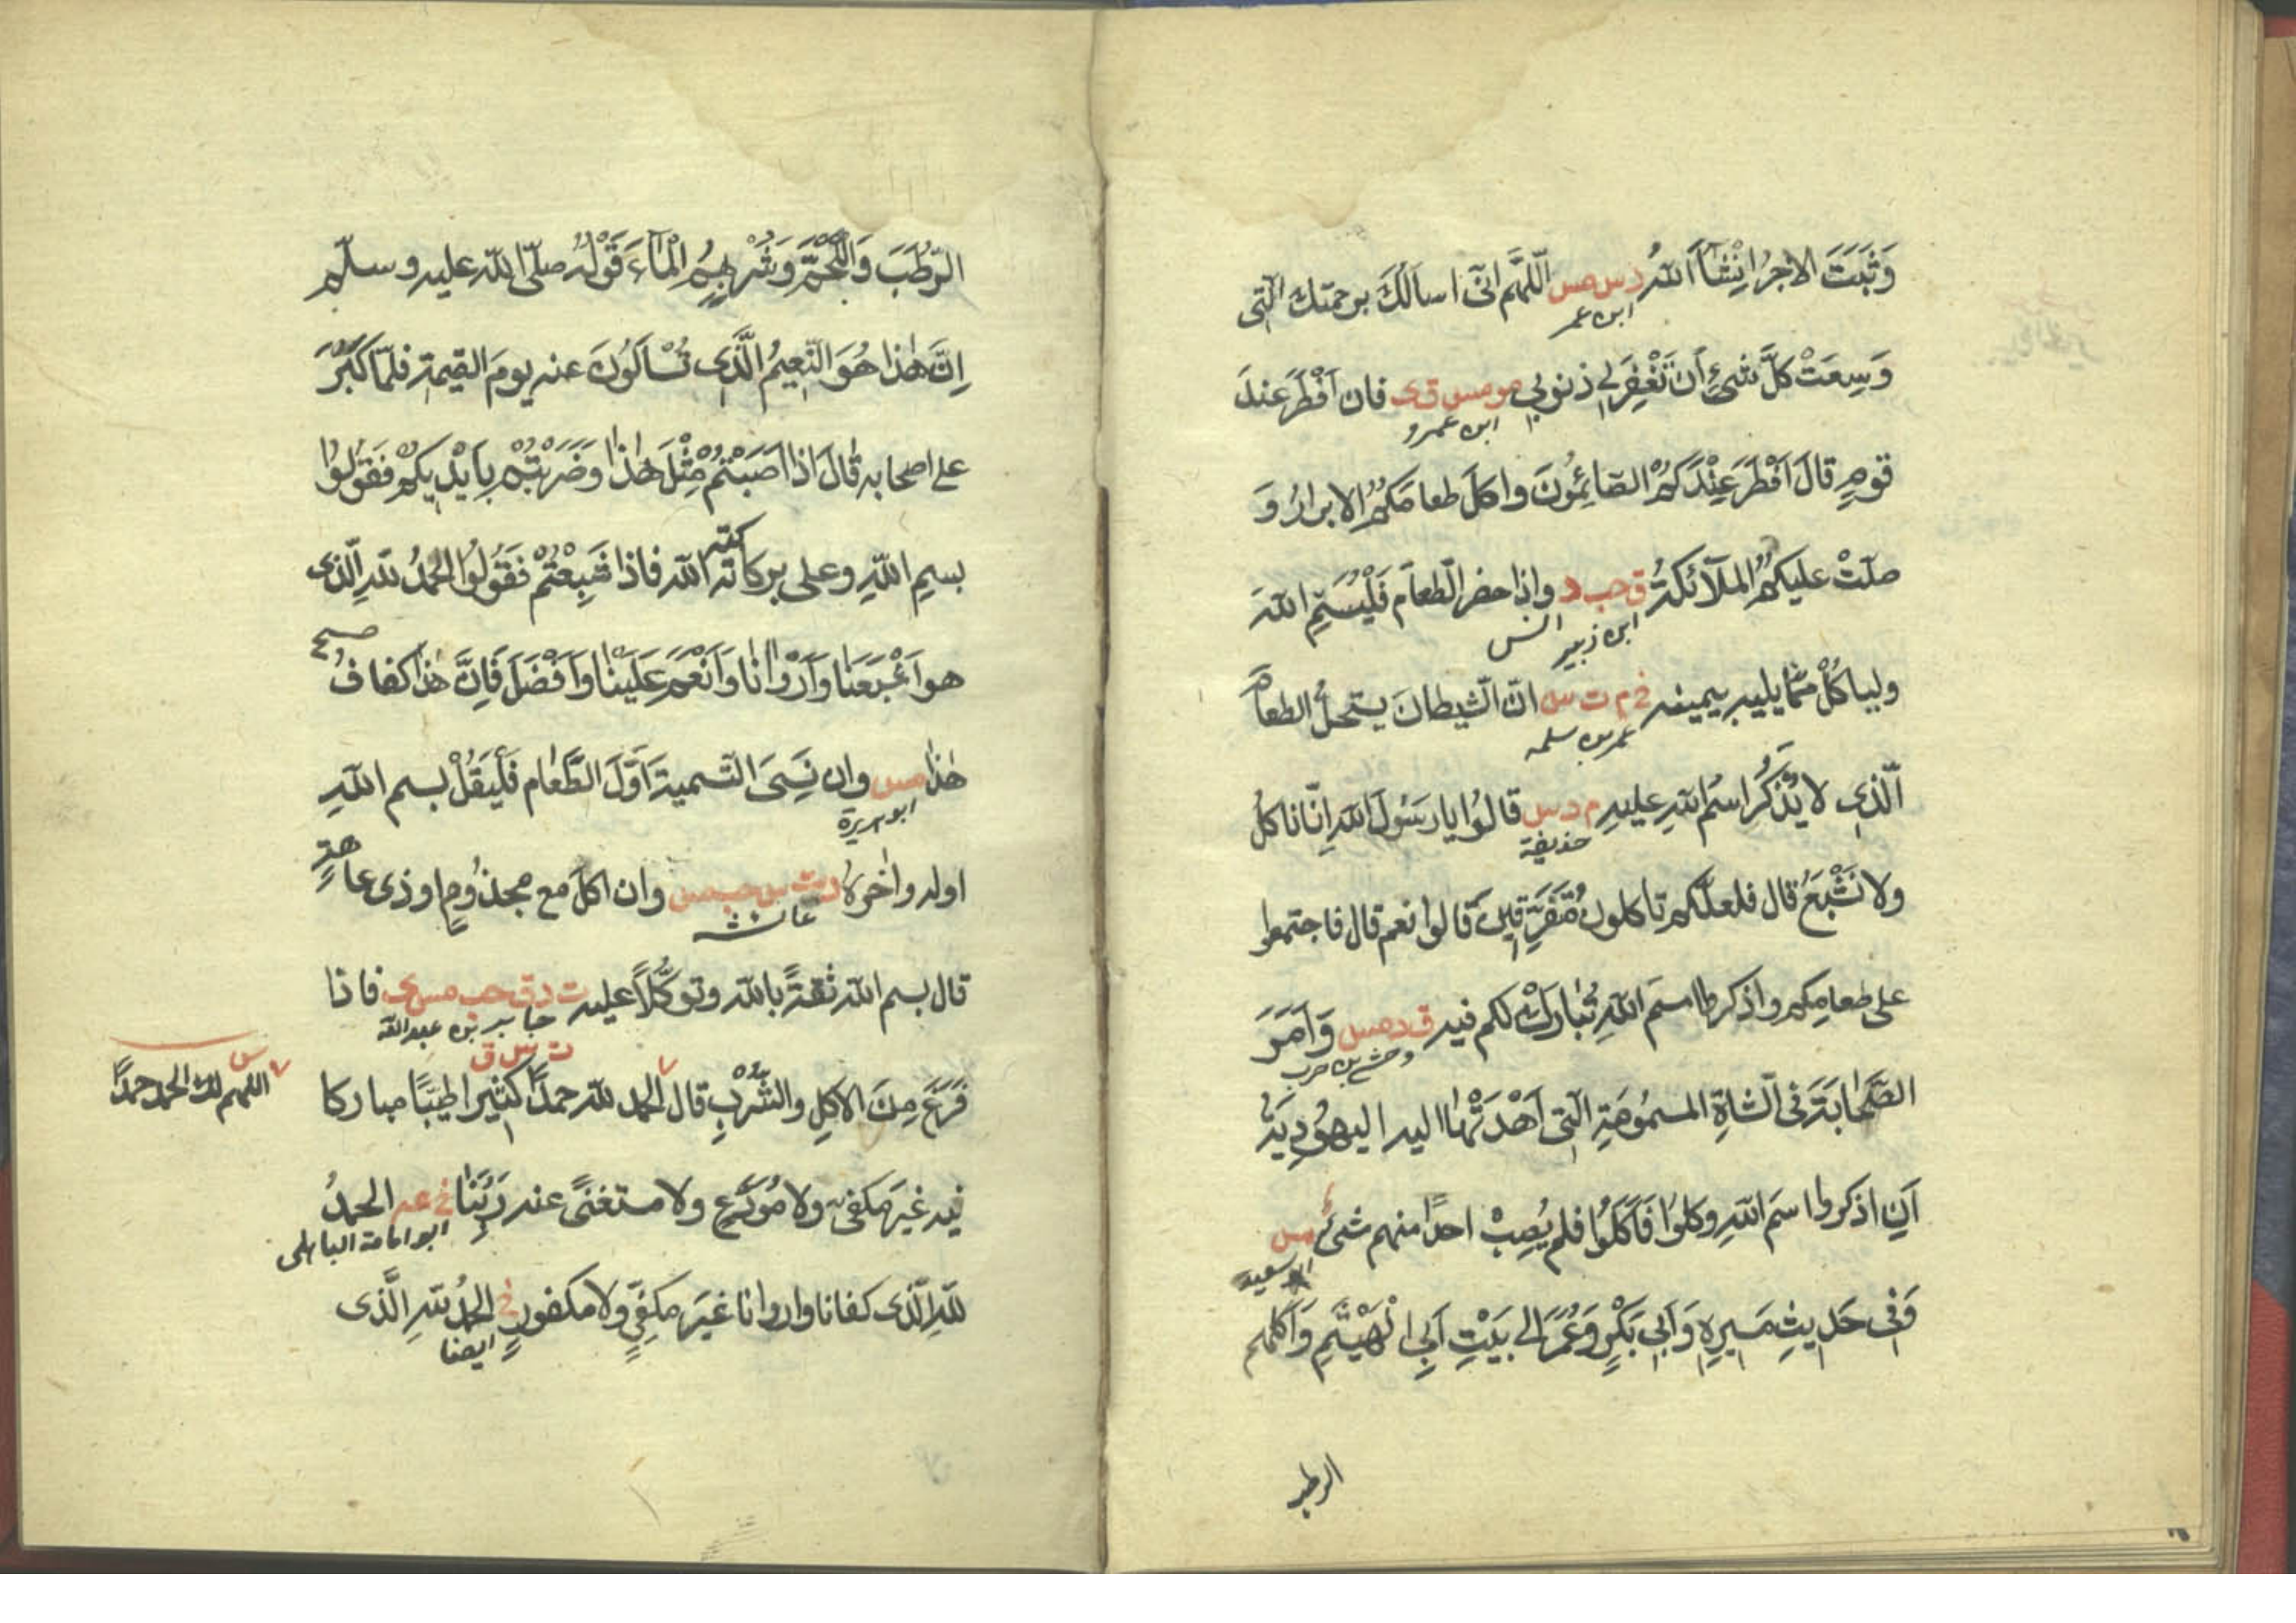 وَثَبَتَ الاجرُ اِنْشَآءَ اللّٰهُ د س مس اَللّٰهُمَّ اِنّى اسالُكَ برحمتك الّتى
ابن عمر
وَسِعَتْ كُلَّ شَىْءٍ اَنْ تَغْفِرَ لِى ذنوبى مو مس ق ى فان اَفْطَرَ عندَ
ابن عمرو
قومٍ قالَ اَفْطَرَ عِنْدَكُمُ الصّائِمُونَ واكلَ طعامَكُمُ الابرارُ وَ
صلّتْ عليكُمُ الملآئكةُ ق حب د واذا حضر الطّعام فَلْيُسَمِّ اللّٰهَ
ابن زبير انس
ولياكُلْ ممّا يليهِ بيمينه خ م ت س انّ الشيطانَ يستحلُّ الطعامَ
عمر بن سلمه
الّذى لا يُذْكَرُ اسمُ اللّٰهِ عليهِ م د س قالُوا يا رسُولَ اللّٰهِ اِنّا ناكلُ
حذيفة
ولا نَشْبَعُ قال فلعلّكم تاكلون مُتَفَرِّقِينَ قالوا نعم قال فاجتمعوا
على طعامِكم واذكروا اسمَ اللّٰهِ يُبَارَكْ لكم فيه ق د مس وَاَمَرَ
وحشى بن حرب
الصَّحَابَةَ فى الشاةِ المسمُومَةِ الّتى اَهْدَتْهَا اليه اليهُودِيَّةُ
اَنِ اذكروا اسمَ اللّٰهِ وكلوا فَاَكَلُوا فلم يُصِبْ احدًا منهم شىءٌ مس
ابو سعيد
وَفى حَدِيثِ مَسِيرِهٖ وَاَبى بَكْرٍ وَعُمَرَ الى بَيْتِ اَبِى الْهَيْثَمِ وَاَكلهم
الرطب
الرُّطَبَ وَاللَّحْمَ وَشُرْبِهِمُ الْمَآءَ قَوْلُهُ صلّى اللّٰه عليه وسلّم
اِنَّ هٰذا هُوَ النَّعِيمُ الَّذِى تُسْاَلُونَ عنه يومَ القيمة فلمّا كَبُرَ
على اصحابه قَالَ اذا اَصَبْتُمْ مِثْلَ هٰذا وضَرَبْتُمْ بِاَيْدِيكُمْ فَقُولُوا
بسمِ اللّٰهِ وعلى بركاته اللّٰه فاذا شَبِعْتُمْ فَقُولُوا الحمدُ للّٰهِ الّذى
كته
هو اَشْبَعَنا وَاَرْوَانَا وَاَنْعَمَ عَلَيْنَا وَاَفْضَلَ فَاِنَّ هٰذا كفافُ
صح
هٰذا مس وان نَسِىَ التّسميةَ اَوّلَ الطَّعَام فَلْيَقُلْ بسم اللّٰهِ
ابو هريرة
اوله واٰخرهُ د ت س حب مس وان اكلَ مع مجذُومٍ او ذى عاهةٍ
عائشه
قال بسم اللّٰه ثقةً باللّٰه وتوكُّلًا عليه ت د ق حب مس ى فاذا
جابر بن عبد اللّٰه
ت س ق
فَرَغَ مِنَ الاكلِ والشُّرْبِ قال الحمد للّٰه حمدًا كثيرا طيّبًا مباركا
س
اللهم لك الحمد حمدًا
فيه غيرَ مكفىّ ولا مُوَدَّعٍ ولا مستغنىً عنه رَبَّنَا خ عه الحمدُ
ابو امامة الباهلى
للّٰهِ الّذى كفانا واروانا غيرَ مكفىٍّ ولا مكفورٍ خ الحمدُ للّٰهِ الَّذى
ايضا